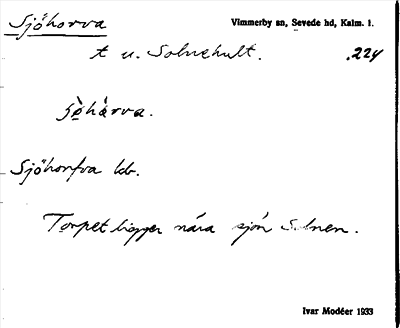 Sjöhorva
Vimmerby sn, Sevede hd, Kalm. l.
t u. Solnehult.
.224
sjö̀hàrva.
Sjöhorfva kb.
Torpet ligger nära sjön Solnen.
Ivar Modéer 1933